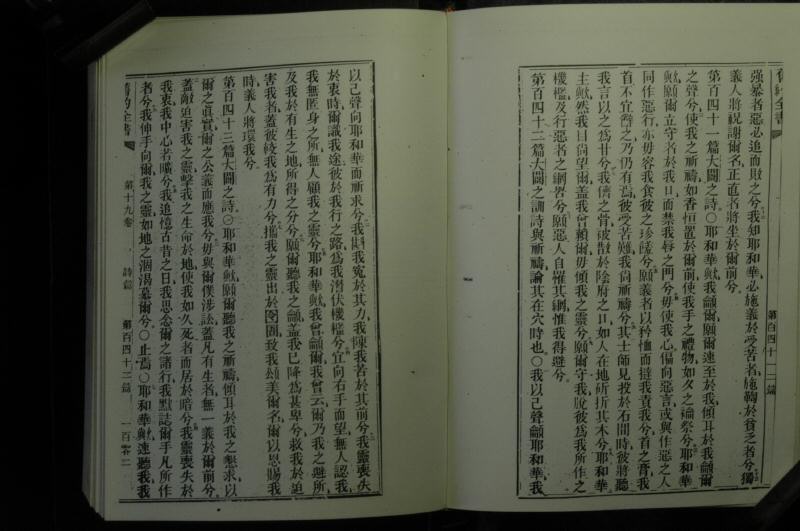 舊約全書
第百四十二篇
強暴者惡必追而敗之兮我知耶和華必施義於受苦者施鞠於貧乏者兮獨
義人將祝謝爾名正直者將坐於爾前兮
第百四十一篇大闢之詩〇耶和華歟我龥爾願爾速至於我傾耳於我龥爾
之聲兮使我之祈禱如香恒置於爾前使我手之禮物如夕之祭兮耶和華
歟願爾立守者於我口而禁我唇之門兮毋使我心偏向惡言或與作惡之人
同作惡行亦毋容我食彼之珍饈兮願義者以矜恤而撻我責我兮首之膏我
首不宜辭之乃仍有焉彼受苦難我尚祈禱兮其士師見投於石間時彼將聽
我言以之為甘兮我儕之骨被散於陰府之口如人在地斫折其木兮耶和華
主歟然我目尚望爾蓋我曾賴爾毋傾我之靈兮願爾守我脫彼為我所作之
機檻及行惡者之網罟兮願惡人自罹其網惟我得避兮
第百四十二篇大闢之訓詩與祈禱論其在穴時也〇我以己聲龥耶和華我
以己聲向耶和華而祈求兮我斟我冤於其力我陳我苦於其前兮我靈喪失
於衷時爾識我途彼於我行之路為我潛伏機檻兮宜向右手而望無人認我
我無匿身之所無人顧我之靈兮耶和華歟我曾龥爾我曾云爾乃我之避所
及我於有生之地所得之分兮願爾聽我之龥蓋我已降為甚卑兮救我於迫
害我者蓋彼較我為有力兮攜我之靈出於囹圄致我頌美爾名爾以恩賜我
時義人將環我兮
第百四十三篇大闢之詩〇耶和華歟願爾聽我之祈禱傾耳於我之懇求以
爾之真實爾之公義而應我兮毋與爾僕涉訟蓋凡有生者無一義於爾前兮
蓋敵迫害我之靈擊我之生命於地使我如久死者而居於暗兮我靈喪失於
我衷我中心若曠兮我追憶古昔之日我思念爾之諸行我默誌爾手凡所作
者兮我伸手向爾我之靈如地之涸渴慕爾兮〇止焉〇耶和華歟速聽我我
舊約全書
第十九卷
詩篇
第百四十三篇
一百零二